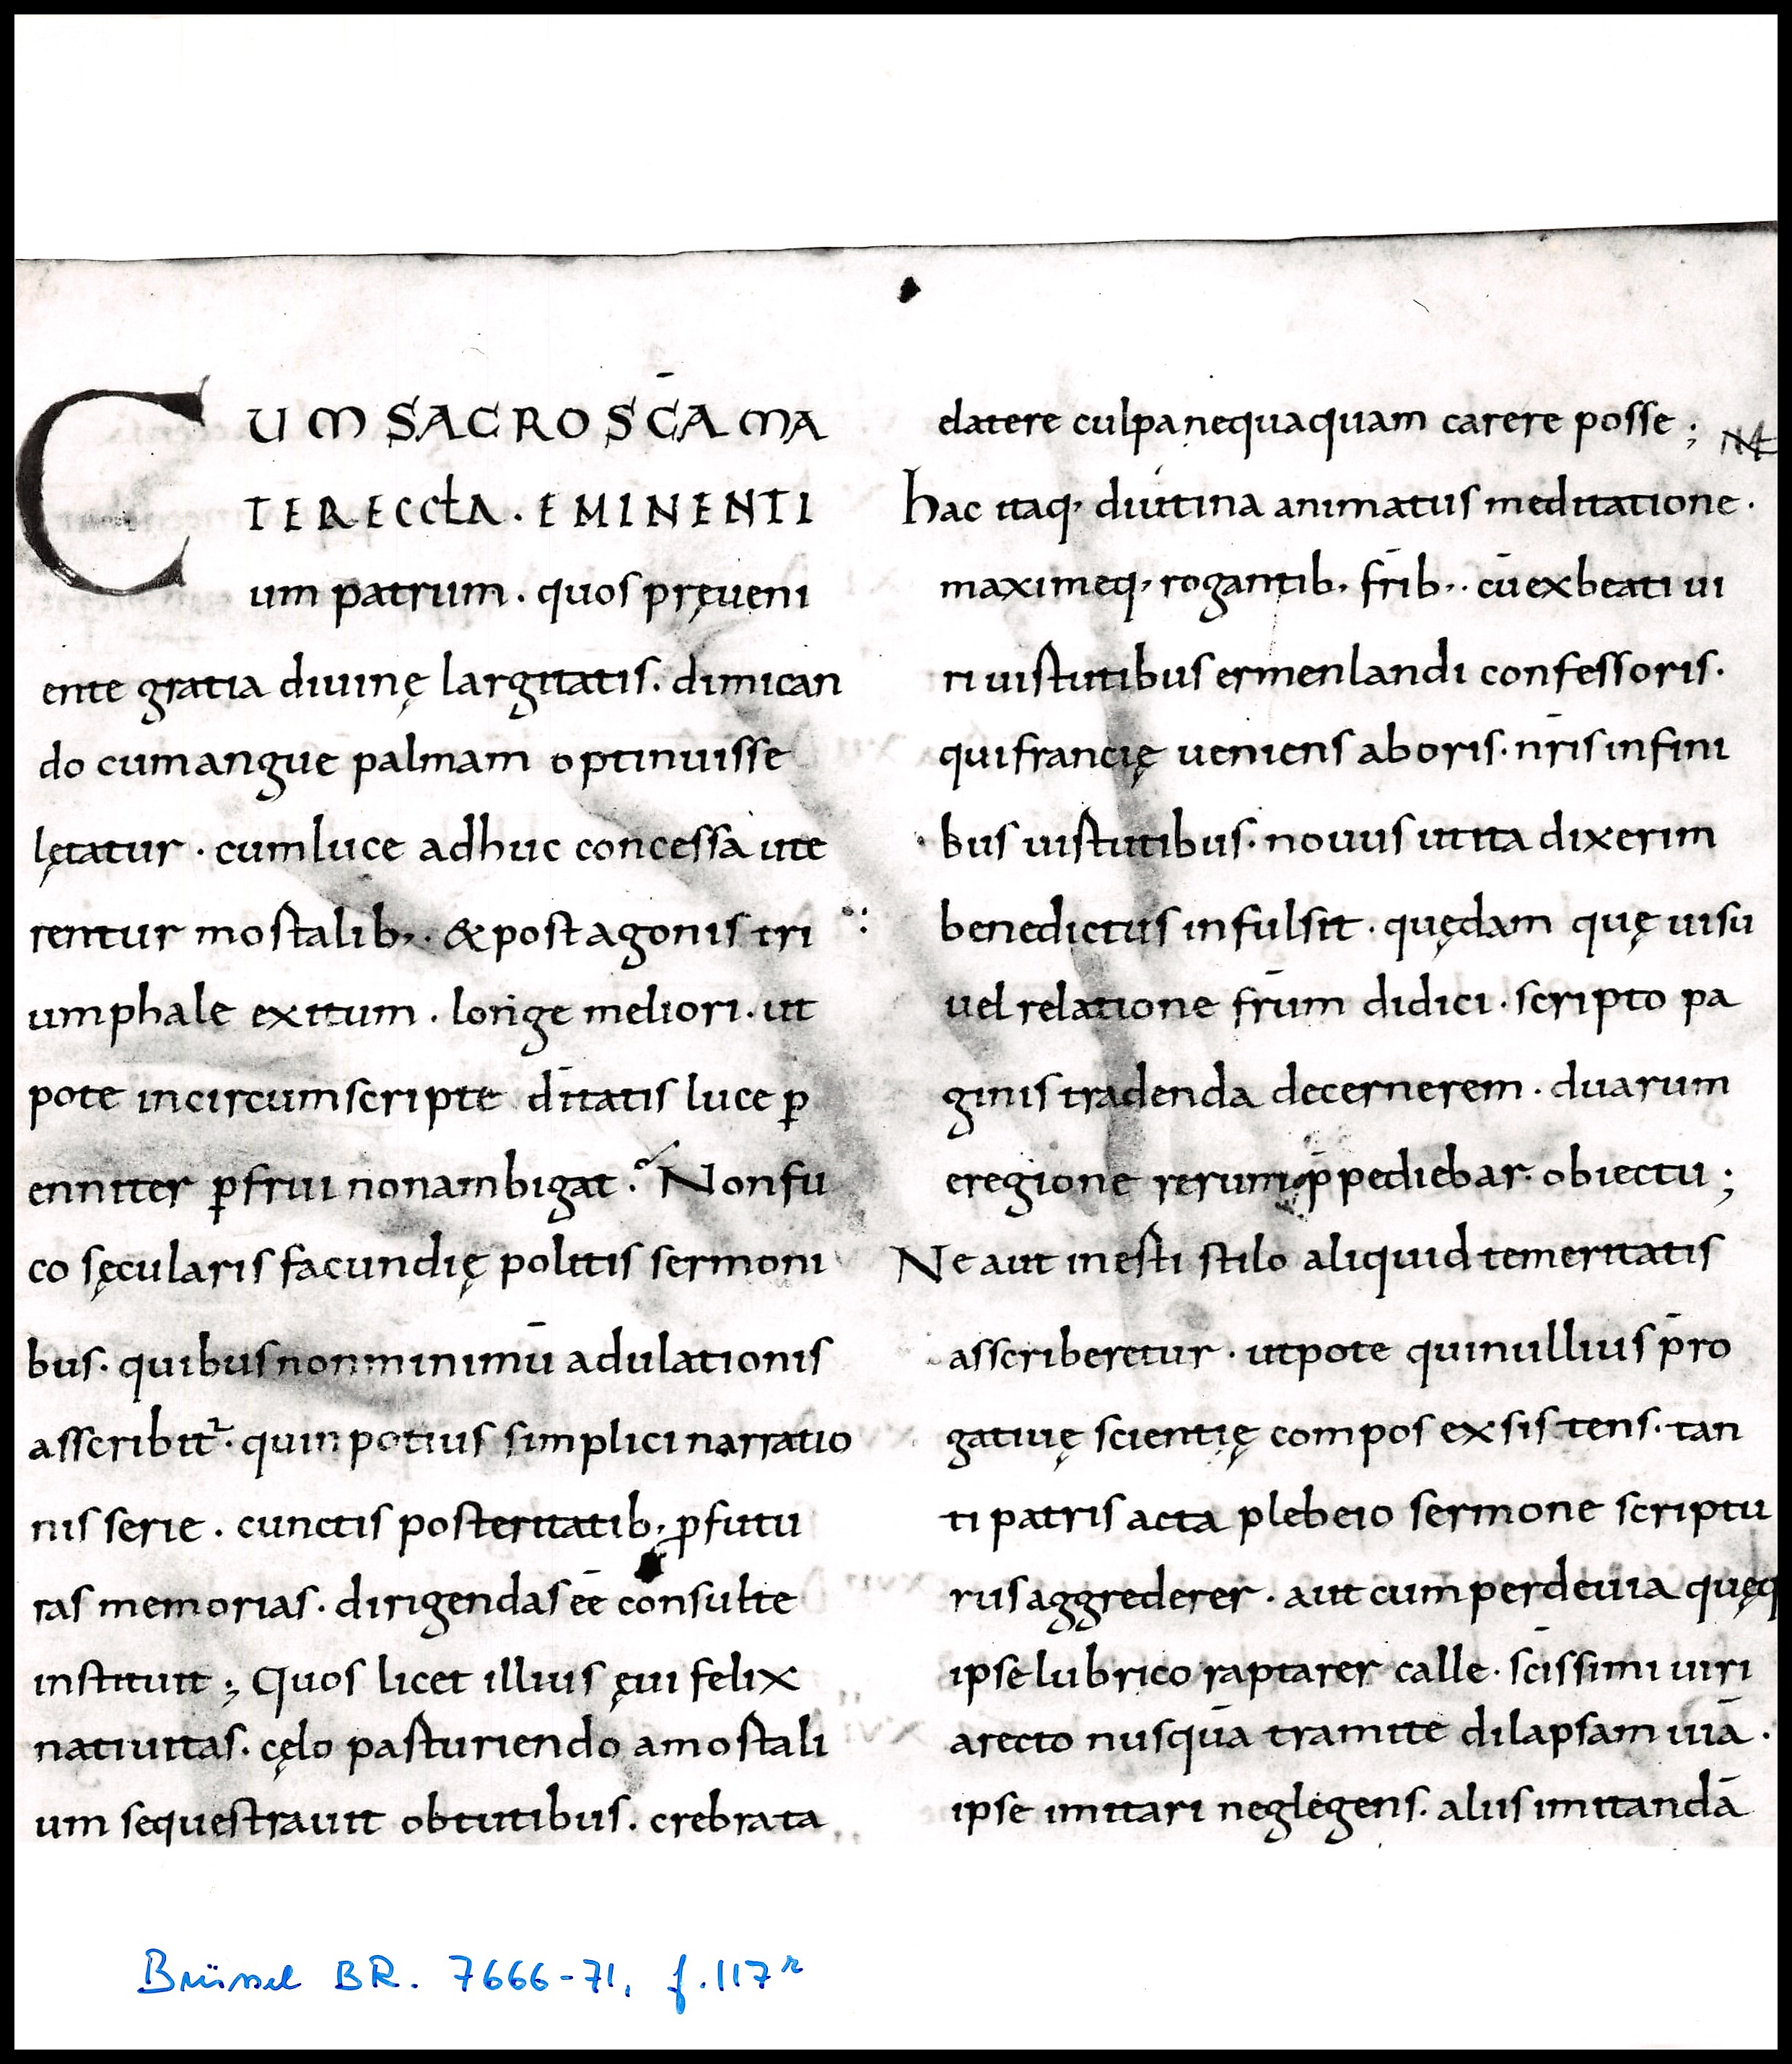 CUM SACROSC̄A MA
TER ECCLA · EMINENTI
um patrum · quos pręueni
ente gratia diuinę largitatis · dimican
do cum angue palmam optinuisse
lętatur · cum luce adhuc concessa ute
rentur mortalib; · & post agonis tri
umphale exitum · longe meliori · ut
pote incircumscripte dītatis luce p̱
enniter p̱frui non ambigat · Non fu
co sęcularis facundię politis sermoni
bus · quibus non minimū adulationis
asscribit᷑ · quin potius simplici narratio
nis serie · cunctis posteritatib; ꝓfutu
ras memorias · dirigendas ēē consulte
instituit ; Quos licet illius ęui felix
natiuitas · cęlo parturiendo a mortali
um sequestrauit obtutibus · crebra ta
datere culpa nequaquam carere posse ;
hac itaq; diutina animatus meditatione ·
maximeq; rogantib; fr̄ib; · cū ex beati ui
ri uirtutibus ermenlandi confessoris ·
qui francię ueniens ab oris · nr̄is in fini
bus uirtutibus · nouus ut ita dixerim
benedictus infulsit · quędam quę uisu
uel relatione fr̄um didici · scripto pa
ginis tradenda decernerem · duarum
e regione rerum p̄pediebar obiectu ;
Ne aut inerti stilo aliquid temeritatis
asscriberetur · utpote qui nullius p̄ro
gatiuę scientię compos exsistens · tan
ti patris acta plebeio sermone scriptu
rus aggrederer · aut cum per deuia quęq
ipse lubrico raptarer calle · sc̄issimi uiri
a recto nusquā tramite dilapsam uiā ·
ipse imitari neglegens · aliis imitandā
Brüssel BR. 7666-71, f. 117r